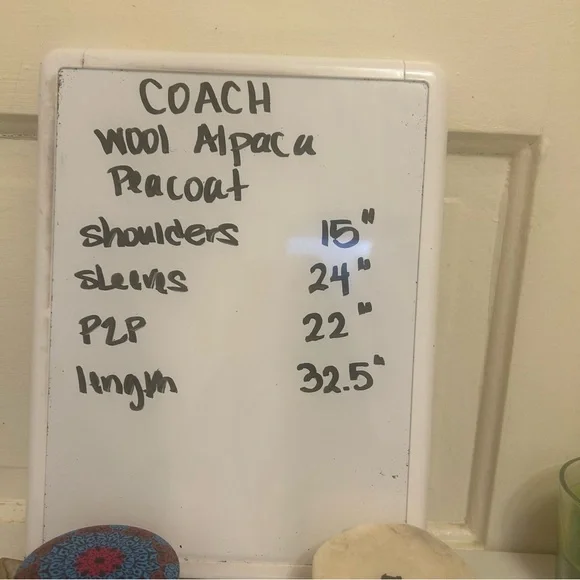 COACH
Wool Alpaca
Peacoat
shoulders 15"
sleeves 24"
P2P 22"
length 32.5"